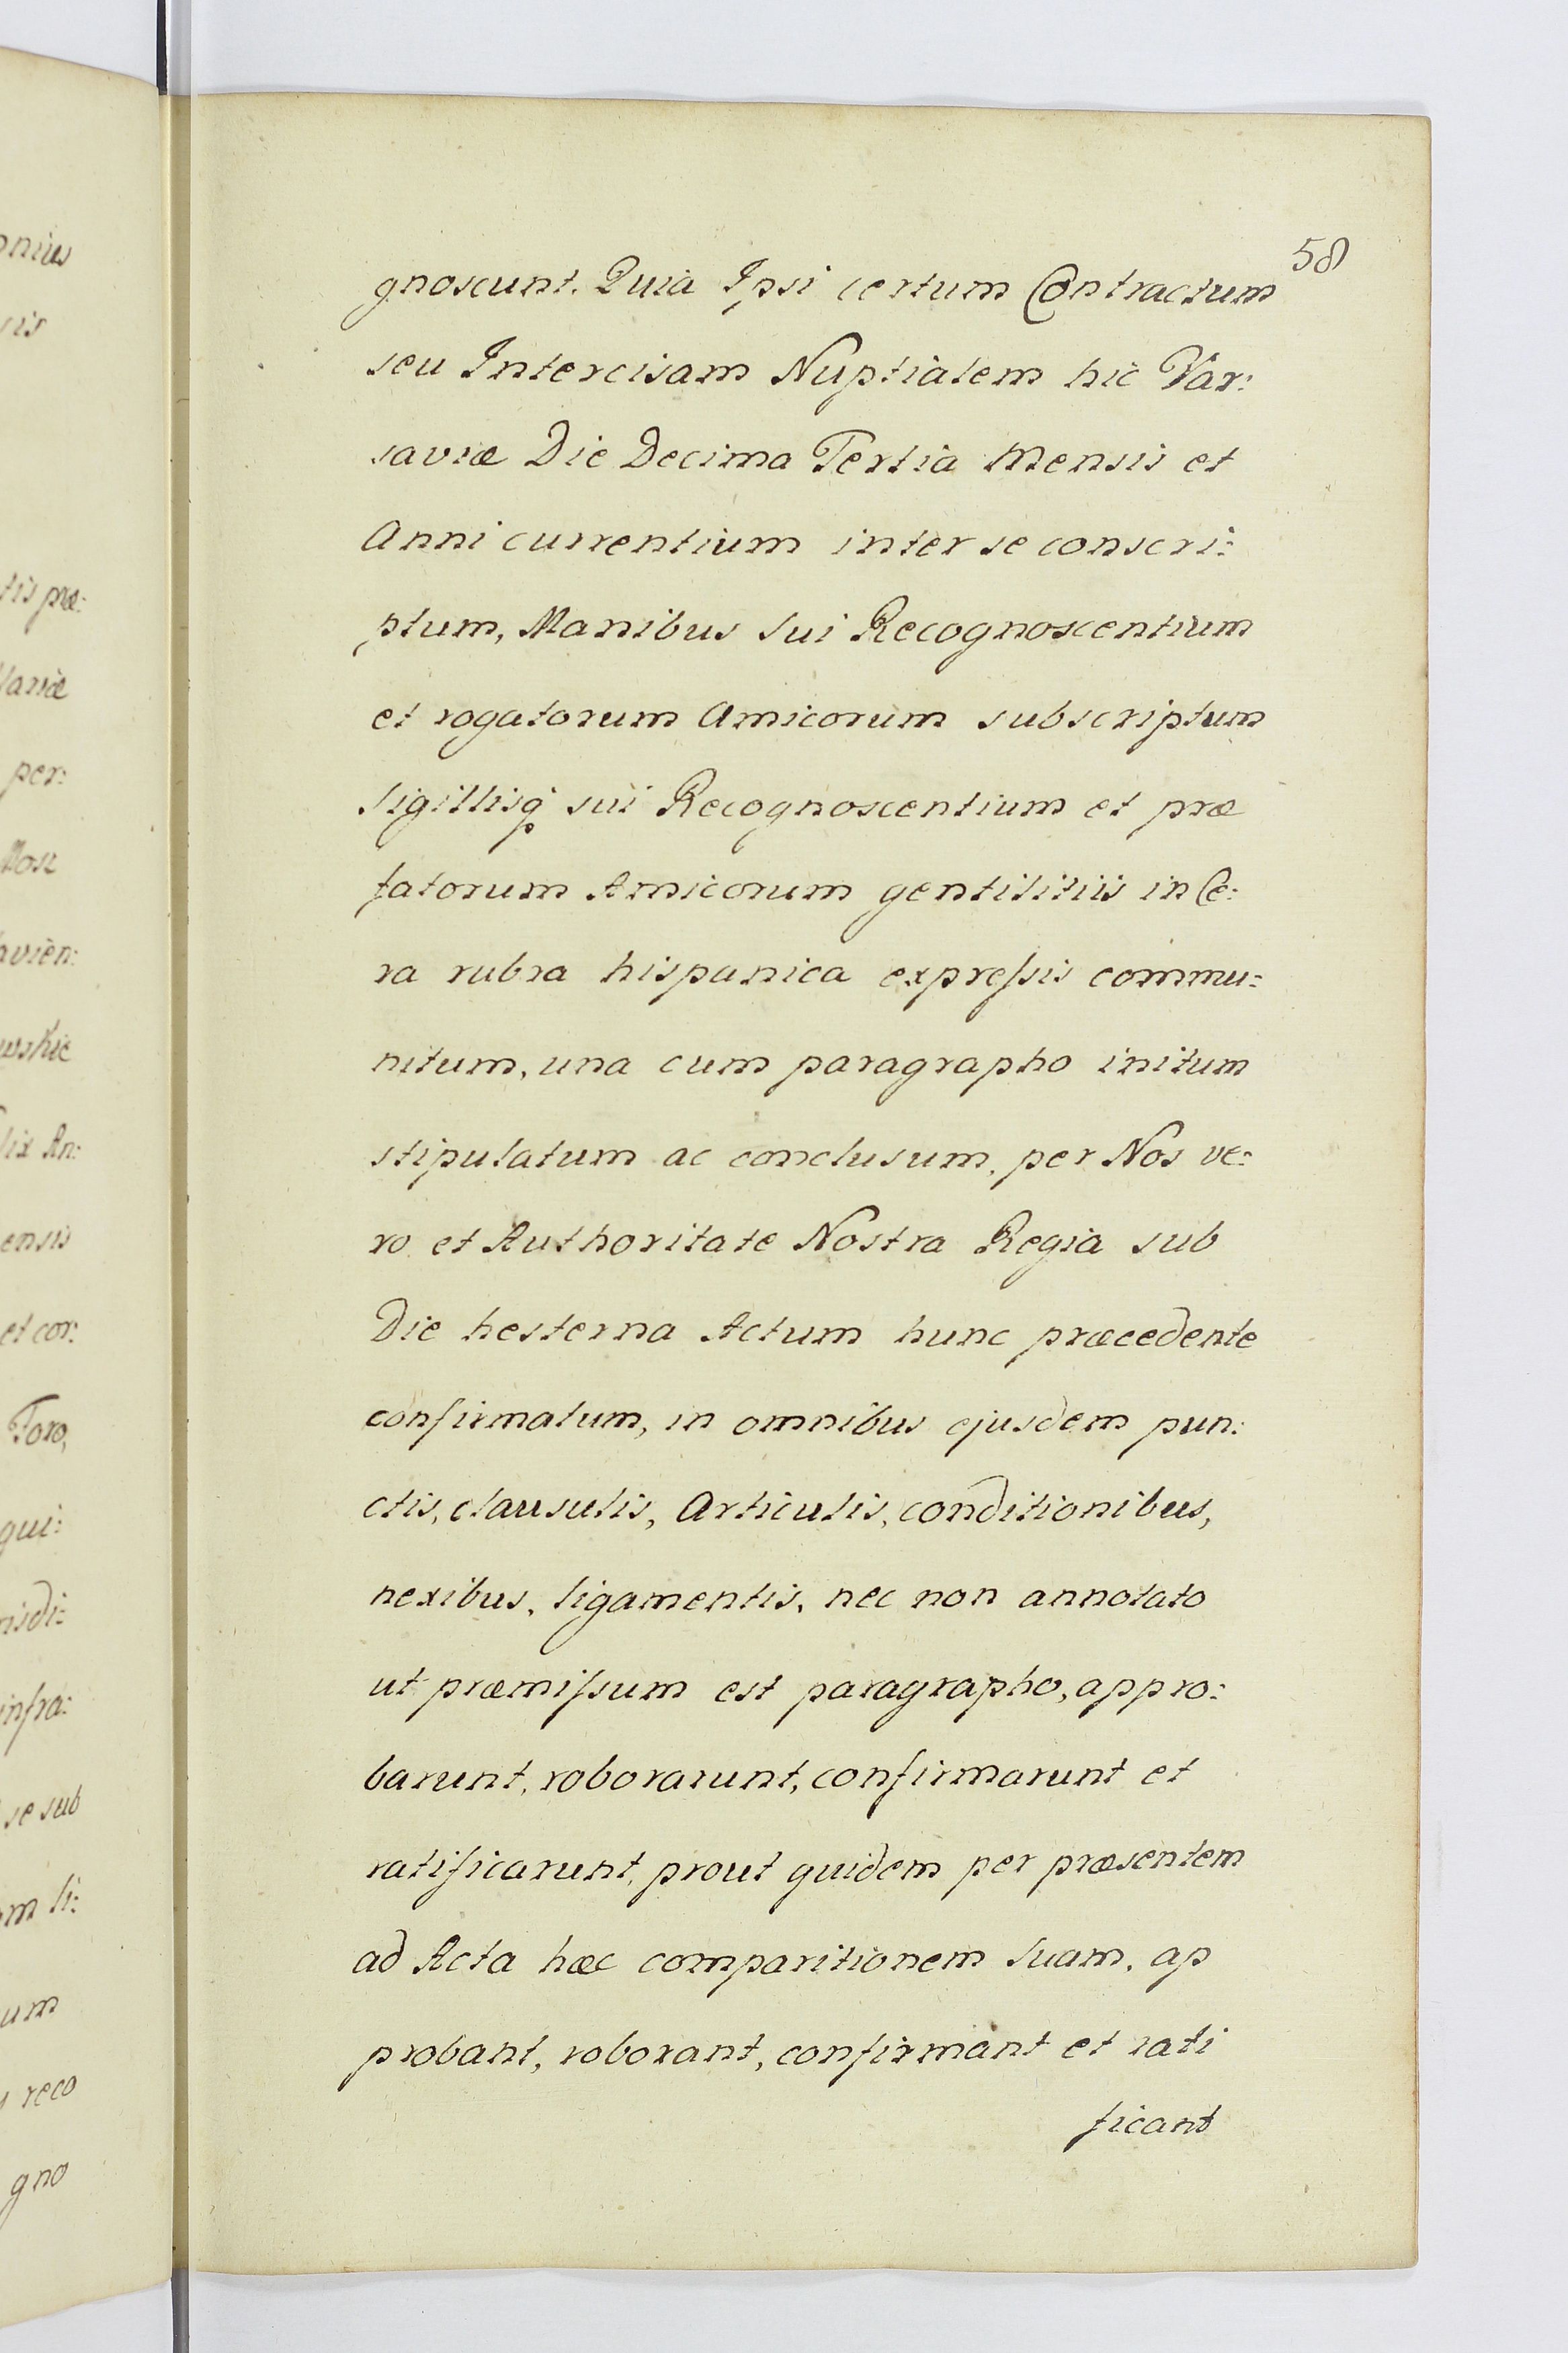 58
gnoscunt. Quia Ipsi certum Contractum
seu Intercisam Nuptialem hic Var:
saviæ Die Decima Tertia Mensis et
Anni currentium inter se conscri:
ptum, Manibus sui Recognoscentium
et rogatorum Amicorum subscriptum
sigillisq sui Recognoscentium et præ
fatorum Amicorum gentilitiis in Ce:
ra rubra hispanica expreſsis commu:
nitum, una cum paragrapho initum
stipulatum ac conclusum, per Nos ve:
ro et Authoritate Nostra Regia sub
Die hesterna Actum hunc præcedente
confirmatum, in omnibus ejusdem pun:
ctis, clausulis, Articulis, conditionibus,
nexibus, ligamentis, nec non annotato
ut præmiſsum est paragrapho, appro:
barunt, roborarunt, confirmarunt et
ratificarunt, prout quidem per præsentem
ad Acta hæc comparitionem suam, ap
probant, roborant, confirmant et rati
ficant
onius
sis
tis præ:
lariæ
per:
Mosc
avien:
wskie
lix An:
ensis
et cor:
Foro,
qui:
risdi:
infra:
se sub
m li:
um
reco
gno